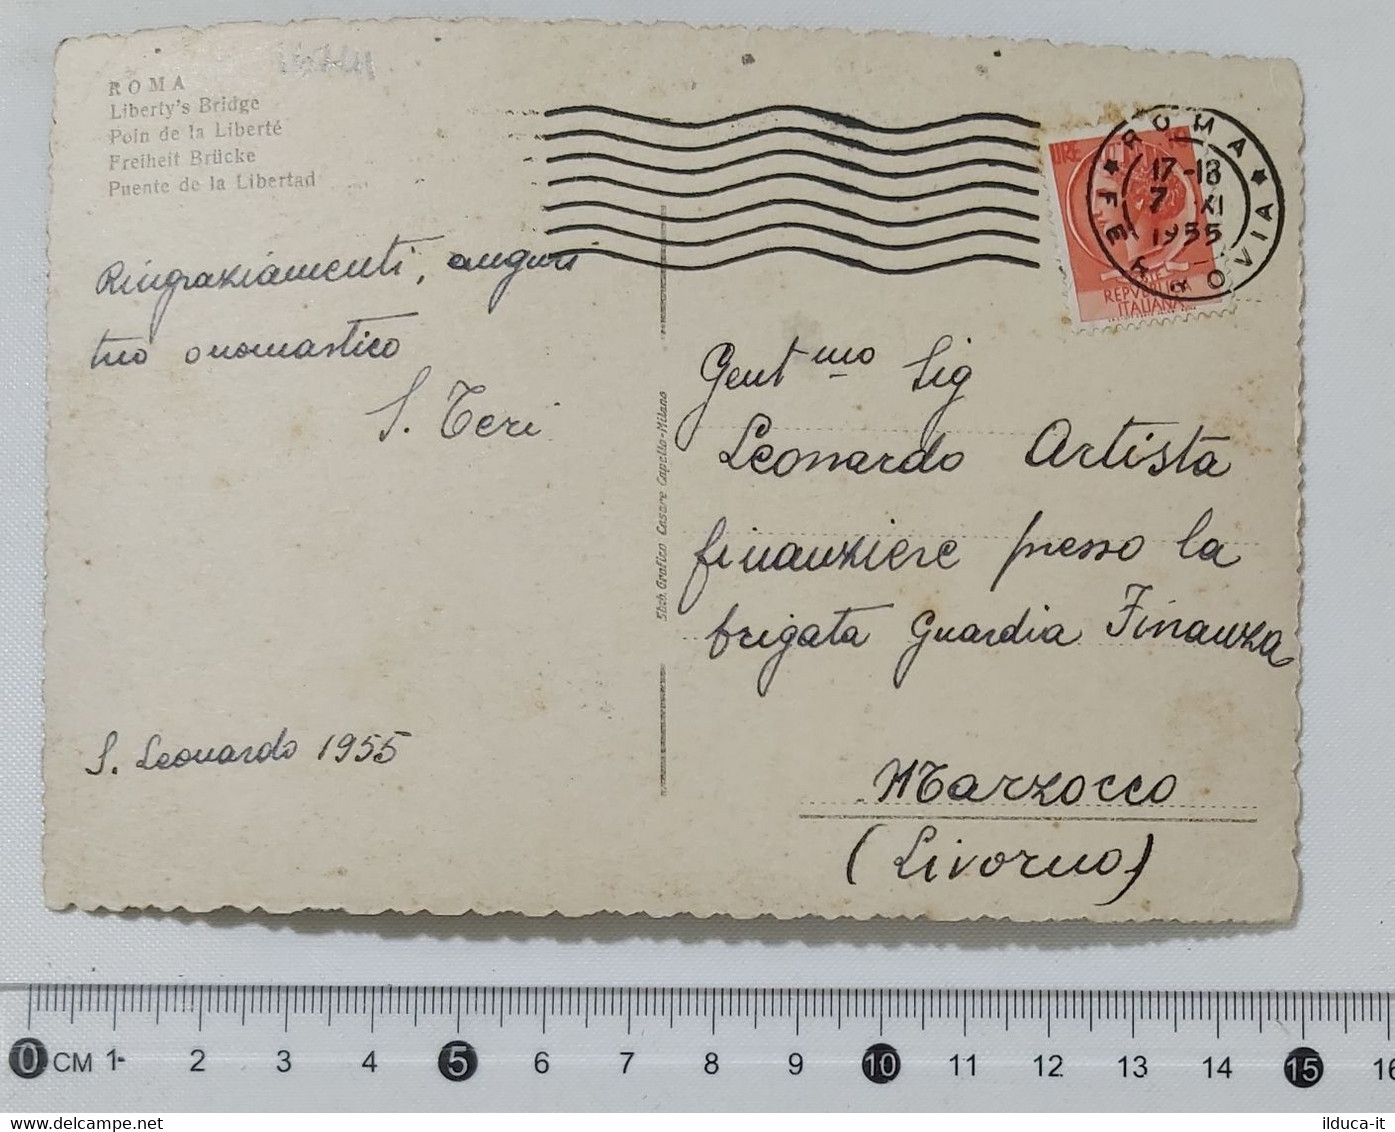 ROMA
Liberty's Bridge
Poin de la Liberté
Freiheit Brücke
Puente de la Libertad
Ringraziamenti, auguri
tuo onomastico
S. Teri
S. Leonardo 1955
Stab. Grafico Cesare Capello-Milano
ROMA
FERROVIA
17-18
7 XI
1955
LIRE
REPVBLICA
ITALIANA
Gent.mo Sig
Leonardo Artista
finanziere presso la
brigata Guardia Finanza
Marzocco
(Livorno)
0 CM 1 2 3 4 5 6 7 8 9 10 11 12 13 14 15 16
www.delcampe.net
ilduca-it